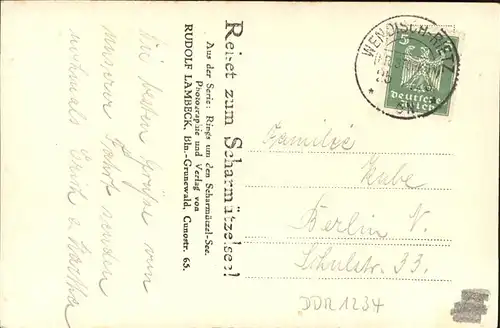 Die besten Grüße von
unserer Fahrt senden
nochmals Erich u. Martha
Reiset zum Scharmützelsee!
Aus der Serie: Rings um den Scharmützel-See.
Photographie und Verlag von
RUDOLF LAMBECK, Bln.-Grunewald, Cunostr. 65.
WENDISCH-RIETZ
5
Deutsches
Reich
Familie
Kube
Berlin N.
Schulstr. 33.
DDR 1234